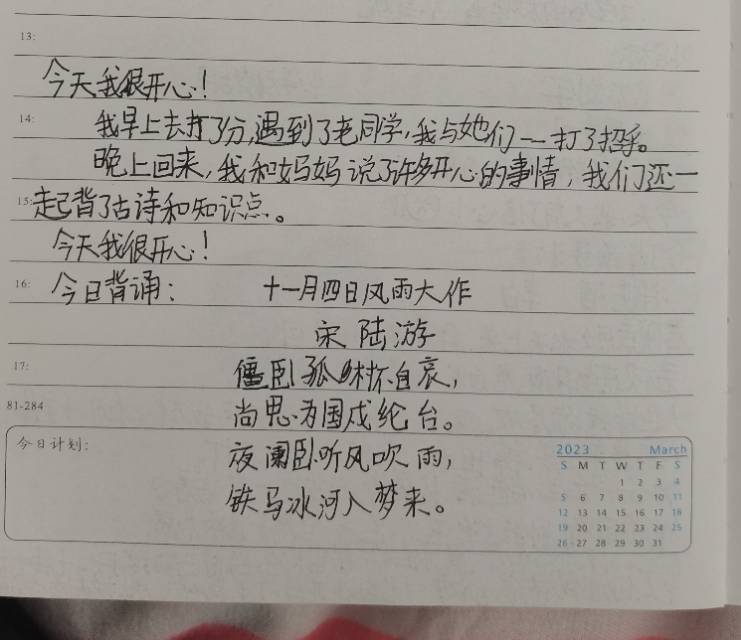 13:
今天我很开心!
14:
我早上去打了分,遇到了老同学,我与她们一一打了招乎。
晚上回来,我和妈妈说了许多开心的事情,我们还一
15:
起背了古诗和知识点。
今天我很开心!
16:
今日背诵: 十一月四日风雨大作
宋 陆游
17:
僵卧孤村不自哀,
81-284
尚思为国戍纶台。
今日计划:
夜阑卧听风吹雨,
铁马冰河入梦来。
2023 March
S M T W T F S
1 2 3 4
5 6 7 8 9 10 11
12 13 14 15 16 17 18
19 20 21 22 23 24 25
26 27 28 29 30 31